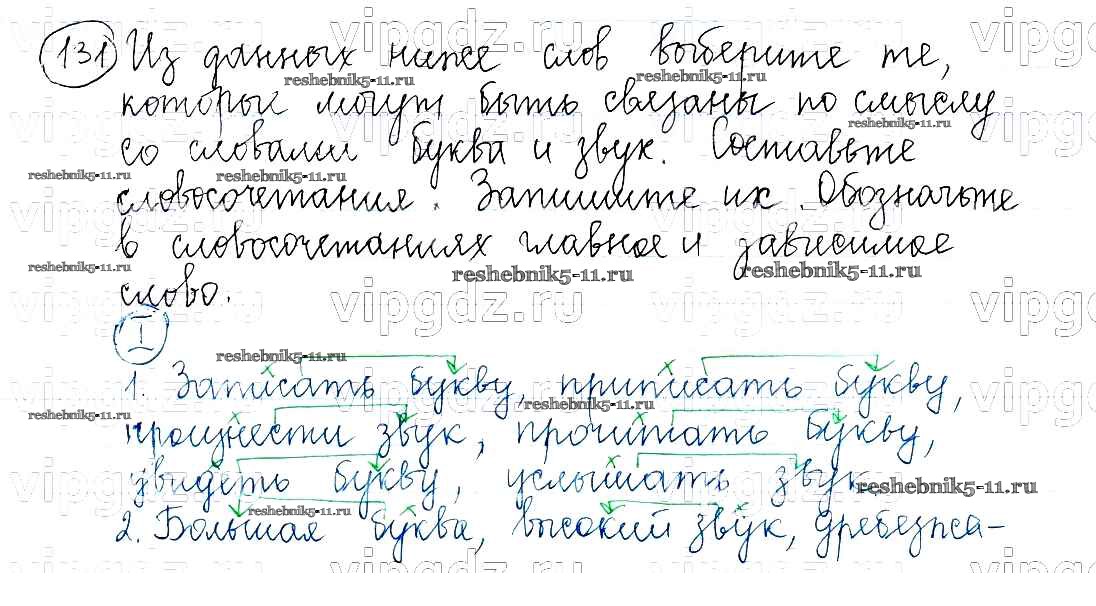 131 Из данных ниже слов выберите те,
которые могут быть связаны по смыслу
со словами буква и звук. Составьте
словосочетания. Запишите их. Обозначьте
в словосочетаниях главное и зависимое
слово.
I
1. Записать букву, приписать букву,
произнести звук, прочитать букву,
увидеть букву, услышать звук.
2. Большая буква, высокий звук, дребезжа-
vipgdz.ru
reshebnik5-11.ru